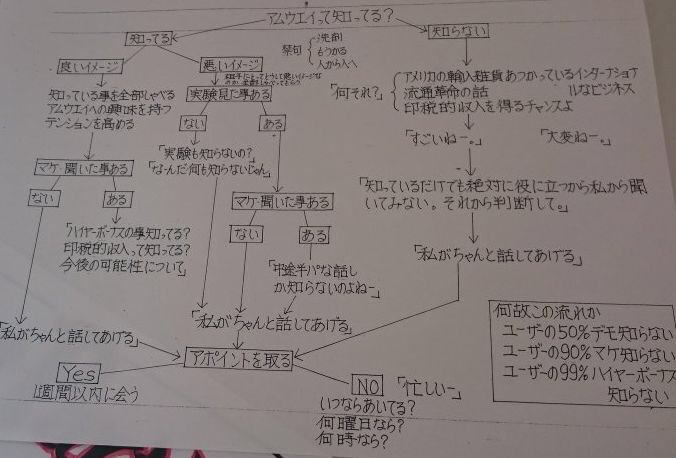 アムウエイって知ってる?
知ってる
知らない
禁句
洗剤
もうかる
人から人へ
良いイメージ
悪いイメージ
知っている事を全部しゃべる
アムウエイへの興味を持つ
テンションを高める
実験見た事ある
ない
ある
「実験も知らないの?」
「な〜んだ何も知らないじゃん」
「何それ?」
アメリカの輸入雑貨あつかっているインターナショナルなビジネス
流通革命の話
印税的収入を得るチャンスよ
「すごいねー。」
「大変ねー。」
マケ・聞いた事ある
ない
ある
「ハイヤーボーナスの事知ってる?
印税的収入って知ってる?
今後の可能性について」
マケ・聞いた事ある
ない
ある
「中途半パな話し
か知らないのよねー」
「知っているだけでも絶対に役に立つから私から聞
いてみない。それから判断して。」
「私がちゃんと話してあげる」
「私がちゃんと話してあげる」
「私がちゃんと話してあげる」
アポイントを取る
Yes
1週間以内に会う
NO
「忙しいー」
いつならあいてる?
何曜日なら?
何時なら?
何故この流れか
ユーザーの50%デモ知らない
ユーザーの90%マケ知らない
ユーザーの99%ハイヤーボーナス
知らない